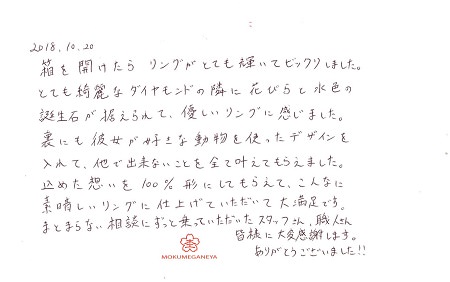 2018.10.20
箱を開けたら リングがとても輝いてビックリしました。
とても綺麗なダイヤモンドの隣に花びらと水色の
誕生石が据えられて、優しいリングに感じました。
裏にも彼女が好きな動物を使ったデザインを
入れて、他で出来ないことを全て叶えてもらえました。
込めた想いを100%形にしてもらえて、こんなに
素晴しいリングに仕上げていただいて大満足です。
まとまらない相談にずっと乗っていただいたスタッフさん、職人さん
皆様に大変感謝します。
ありがとうございました!!
MOKUMEGANEYA